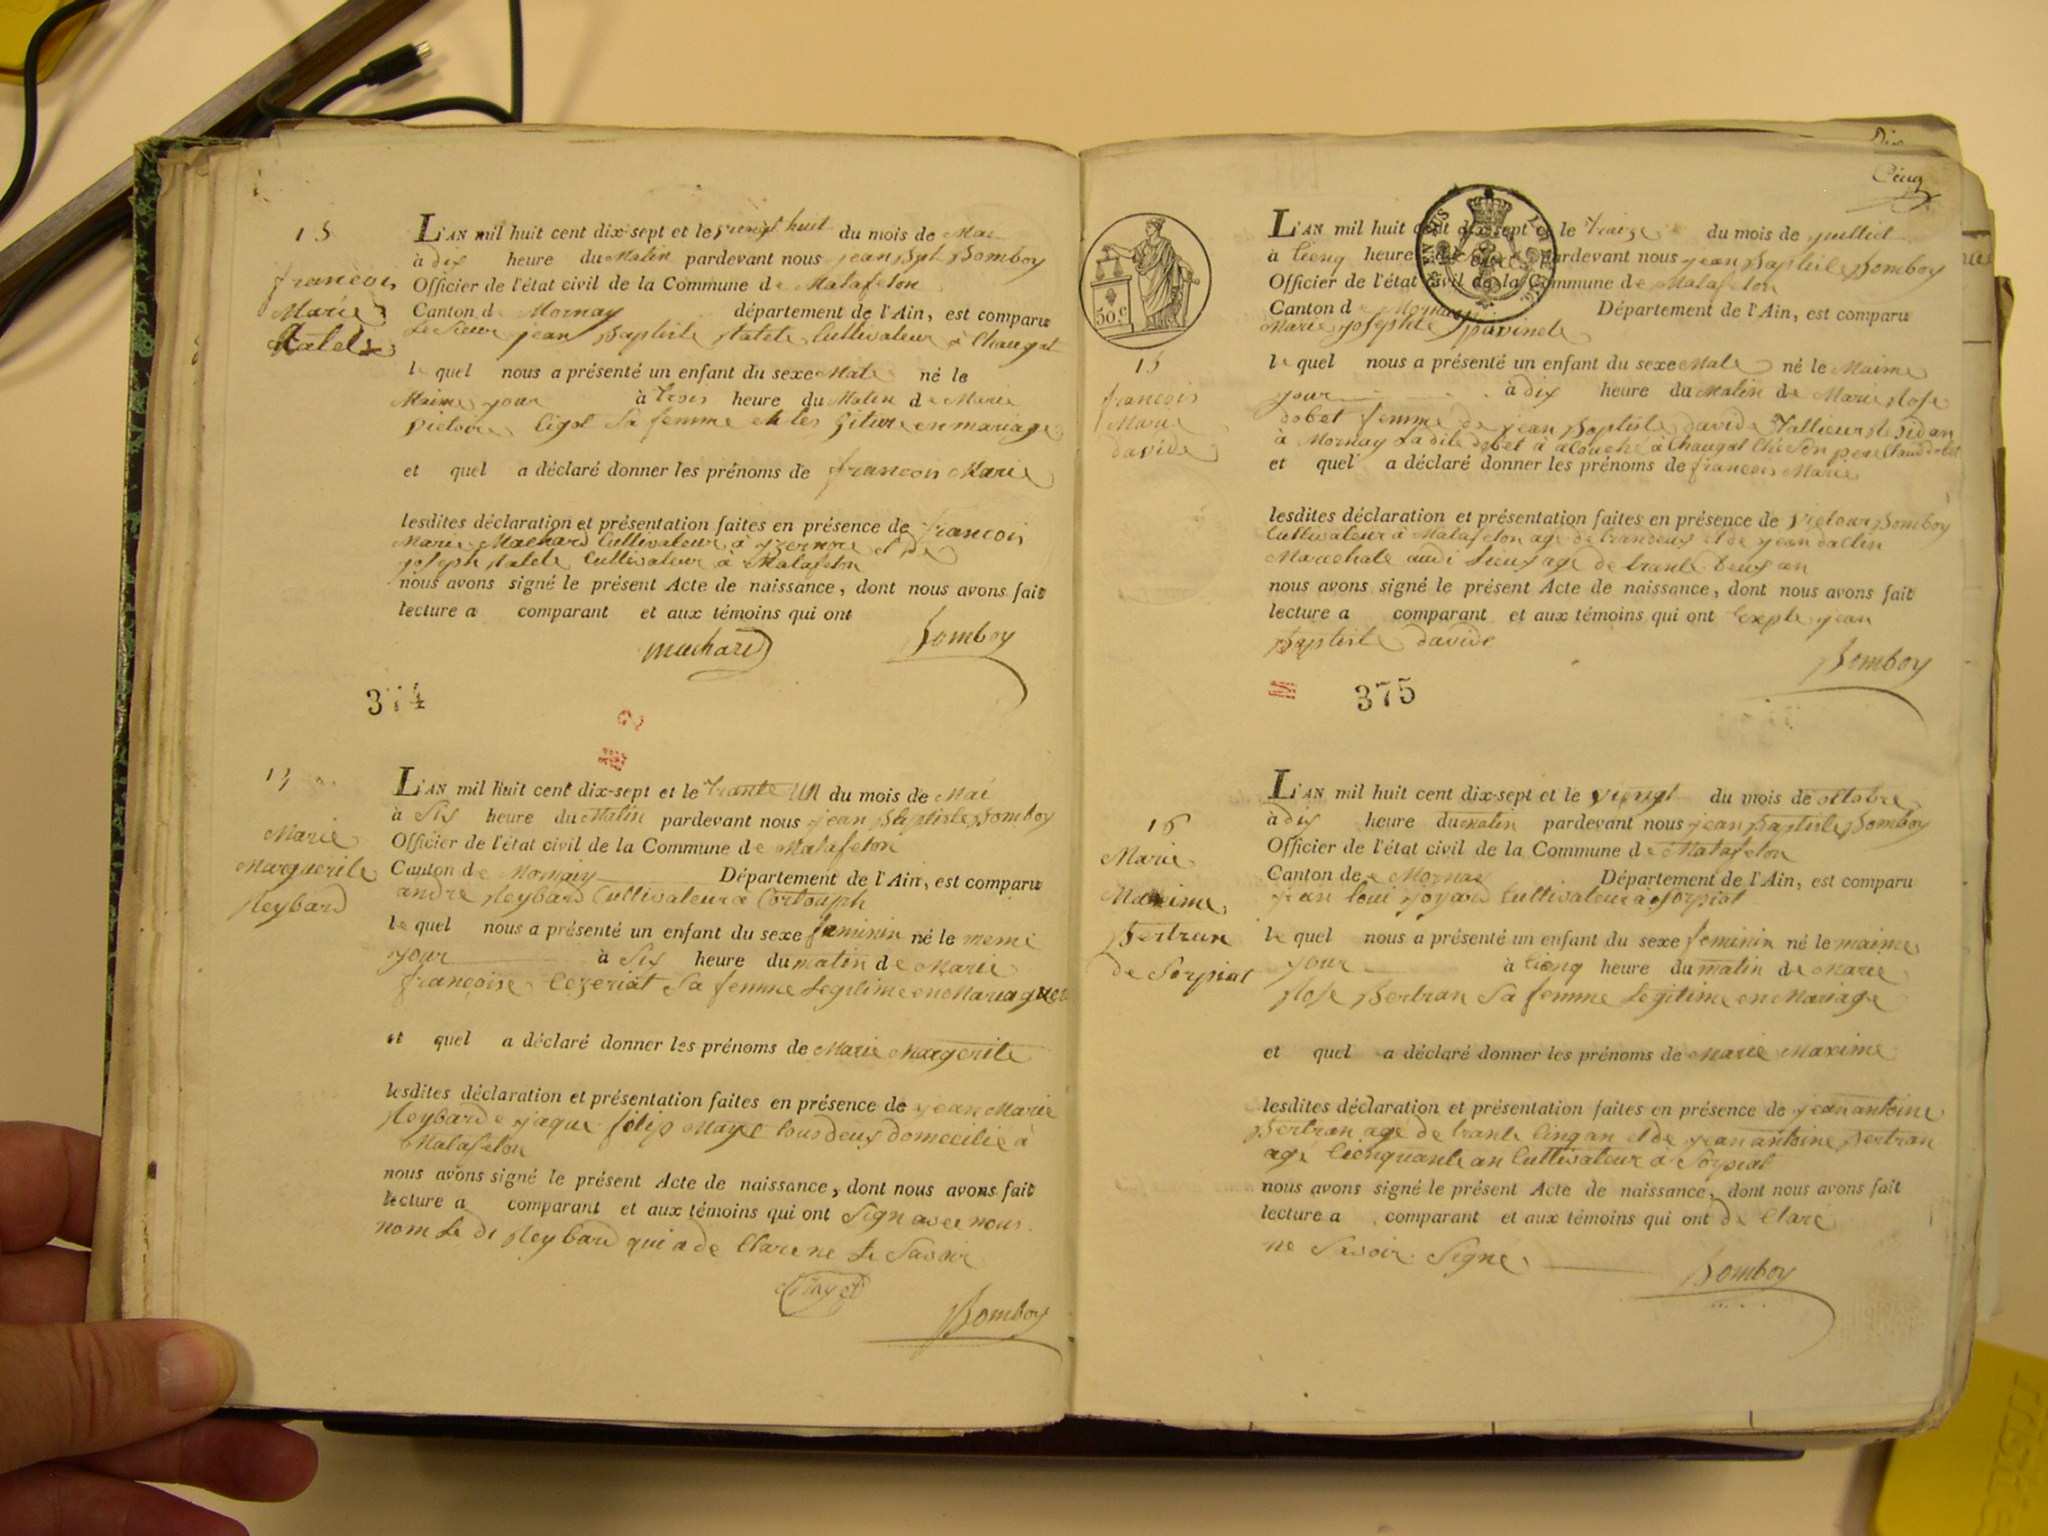 13
François
Marie
L'AN mil huit cent dix-sept et le vingt huit du mois de Mai
à dix heure du Matin pardevant nous jean Bpt Bomboy
Officier de l'état civil de la Commune de Matafelon
Canton de Mornay département de l'Ain, est comparu
Le Sieur jean Baptiste Cultivateur à Chaugat
le quel nous a présenté un enfant du sexe Male né le
Maime jour à trois heure du Matin de Marie
Victoire Ligot Sa femme en mariage
et quel a déclaré donner les prénoms de françois Marie
lesdites déclaration et présentation faites en présence de francois
Marie Machard Cultivateur à et de
joseph Cultivateur à Matafelon
nous avons signé le présent Acte de naissance, dont nous avons fait
lecture a comparant et aux témoins qui ont
machard Bomboy
374
Marie
Marguerite
Reybard
L'AN mil huit cent dix-sept et le trante un du mois de Mai
à Six heure du Matin pardevant nous jean Baptiste Bomboy
Officier de l'état civil de la Commune de Matafelon
Canton de Mornay Département de l'Ain, est comparu
andre Reybard Cultivateur a
le quel nous a présenté un enfant du sexe feminin né le meme
jour à Six heure du matin de Marie
françoise Sa femme Legitime en Mariage
et quel a déclaré donner les prénoms de Marie Margerite
lesdites déclaration et présentation faites en présence de jean Marie
Reybard e jaque filip Mayet tous deux domecilié à
Matafelon
nous avons signé le présent Acte de naissance, dont nous avons fait
lecture a comparant et aux témoins qui ont Sign avec nous
nom Le di Reybard qui a de Clare ne Le Savoir
Bomboy
Cinq
50 C
15
francois
Marie
davide
L'AN mil huit cent dix-sept et le Traize du mois de juilliet
à Cienq heure pardevant nous jean Baptiste Bomboy
Officier de l'état civil de la Commune de Matafelon
Canton de Mornay Département de l'Ain, est comparu
Marie josephte
le quel nous a présenté un enfant du sexe Male né le Maime
jour à dix heure du Matin de Marie Rose
dobet femme de jean Baptiste davide Tallieur
à Mornay Ladite dobet à acouché à Chaugat Ché Son pere
et quel a déclaré donner les prénoms de francois Marie
lesdites déclaration et présentation faites en présence de Victour Bomboy
Cultivateur à Matafelon age de trandeux et de jean
Marechale audi Lieu age de trante deux an
nous avons signé le présent Acte de naissance, dont nous avons fait
lecture a comparant et aux témoins qui ont Exple jean
Baptiste davide
Bomboy
375
16
Marie
Maxime
Bertran
de Sorpiat
L'AN mil huit cent dix-sept et le vingt du mois de octobre
à dix heure du matin pardevant nous jean Baptiste Bomboy
Officier de l'état civil de la Commune de Matafelon
Canton de Mornay Département de l'Ain, est comparu
jean Loui joyard Cultivateur a Sorpiat
le quel nous a présenté un enfant du sexe feminin né le maime
jour à Cienq heure du matin de Marie
Rose Bertran Sa femme Legitime en Mariage
et quel a déclaré donner les prénoms de Marie Maxime
lesdites déclaration et présentation faites en présence de jean antoine
Bertran age de trante Cinq an et de jean antoine Bertran
age Cienquante an Cultivateur à Sorpiat
nous avons signé le présent Acte de naissance, dont nous avons fait
lecture a comparant et aux témoins qui ont de Claré
ne Savoir Signé
Bomboy